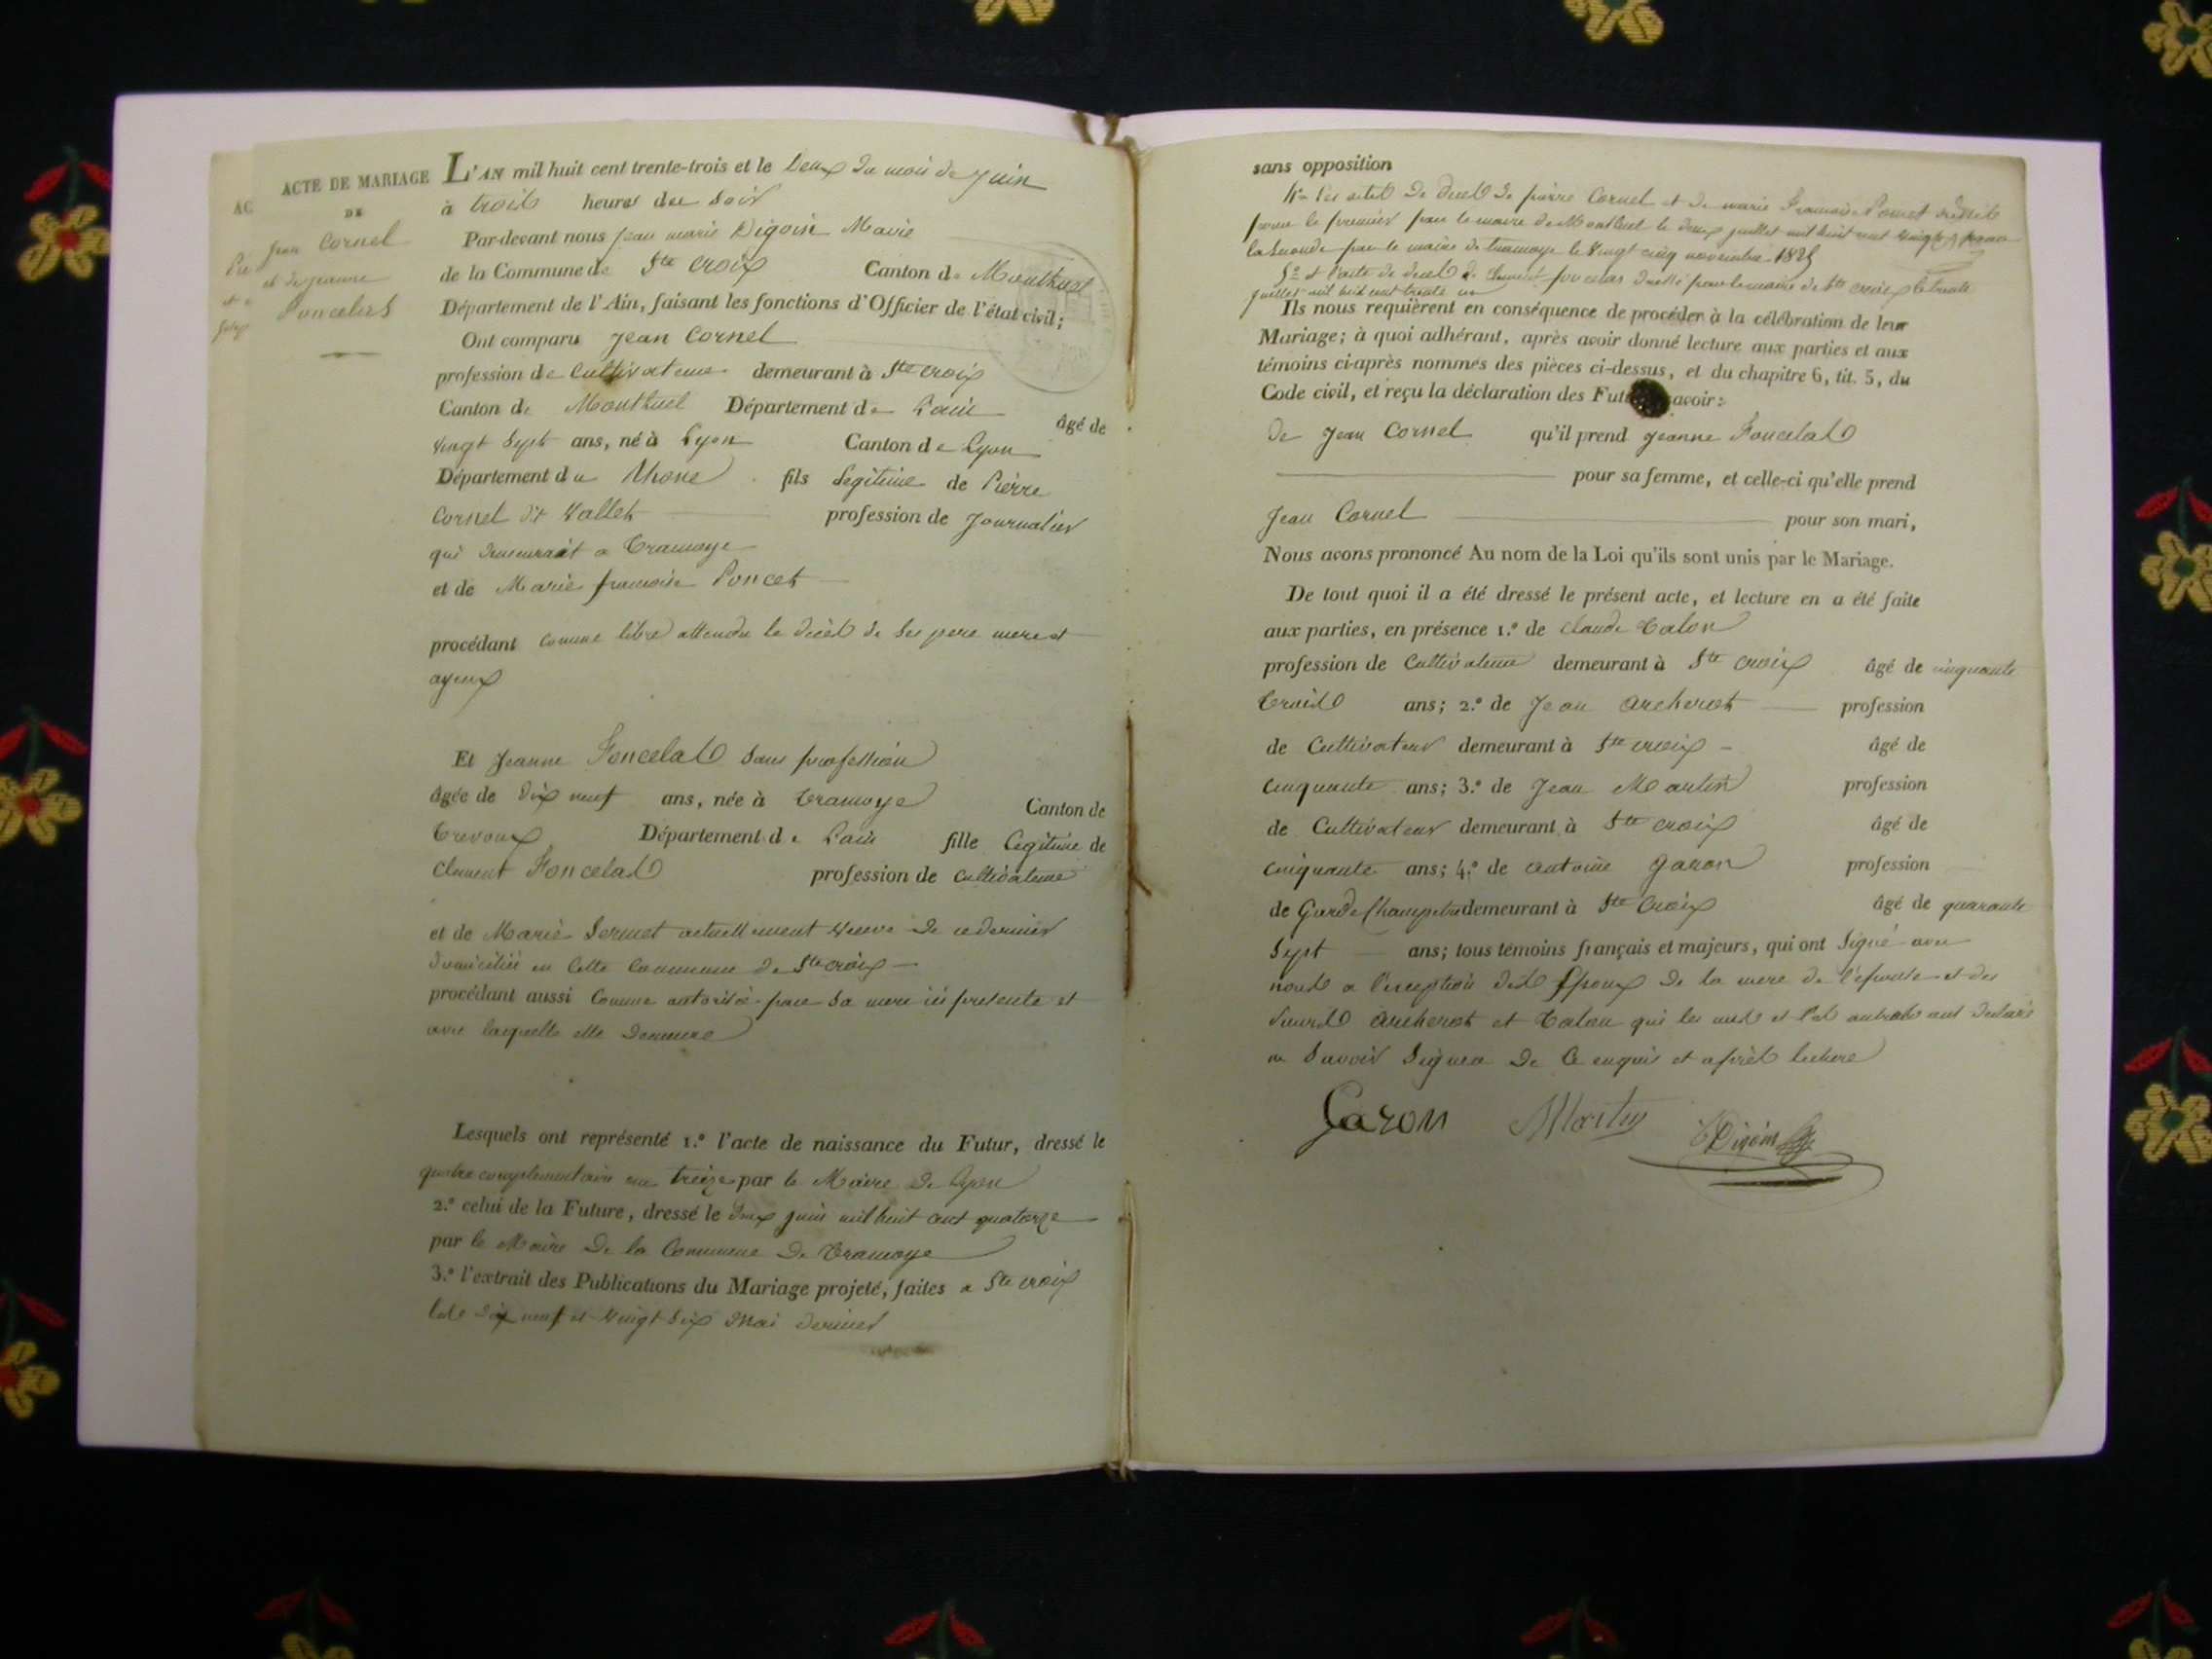 ACTE DE MARIAGE
DE
Jean Cornel
et de jeanne
Foncelas
AC
L'AN mil huit cent trente-trois et le Deux du mois de Juin
à trois heures du Soir
Par-devant nous jean marie Digoin Maire
de la Commune de Ste Croix Canton de Montluel
Département de l'Ain, faisant les fonctions d'Officier de l'état civil;
Ont comparu Jean Cornel
profession de Cultivateur demeurant à Ste croix
Canton de Montluel Département de Lain âgé de
vingt Sept ans, né à Lyon Canton de Lyon
Département du Rhone fils Legitime de Pierre
Cornel dit Vallet profession de Journalier
qui demeurait a Tramoye
et de Marie francoise Poncet
procédant comme libre attendu le décès de Ses pere mere et
ayeux
Et Jeanne Foncelas Sans profession
âgée de dix neuf ans, née à Tramoye Canton de
Trevoux Département de Lain fille Legitime de
Clement Foncelas profession de Cultivateur
et de Marie Sermet actuellement Veuve de ce dernier
domiciliée en Cette Commune de Ste croix
procédant aussi Comme autorisée par Sa mere ici presente et
avec laquelle elle demeure
Lesquels ont représenté 1.º l'acte de naissance du Futur, dressé le
quatre complementaire an treize par le Maire de Lyon
2.º celui de la Future, dressé le deux juin mil huit cent quatorze
par le Maire de la Commune de Tramoye
3.º l'extrait des Publications du Mariage projeté, faites a Ste croix
les dix neuf et Vingt Six Mai dernier
sans opposition
4º les actes de décès de pierre Cornel et de marie Francoise Poncet
pour le premier par le maire de Montluel le deux juillet mil huit cent vingt
la Seconde par le maire de tramoye le Vingt cinq novembre 1825
5º et l'acte de décès de Clement foncelas dressé par le maire de Ste croix le trente
juillet mil huit cent trente un
Ils nous requièrent en conséquence de procéder à la célébration de leur
Mariage; à quoi adhérant, après avoir donné lecture aux parties et aux
témoins ci-après nommés des pièces ci-dessus, et du chapitre 6, tit. 5, du
Code civil, et reçu la déclaration des Fut savoir:
de Jean Cornel qu'il prend Jeanne Foncelas
pour sa femme, et celle-ci qu'elle prend
Jean Cornel pour son mari,
Nous avons prononcé Au nom de la Loi qu'ils sont unis par le Mariage.
De tout quoi il a été dressé le présent acte, et lecture en a été faite
aux parties, en présence 1.º de Claude Talon
profession de Cultivateur demeurant à Ste croix âgé de cinquante
trois ans; 2.º de Jean Archerot profession
de Cultivateur demeurant à Ste croix âgé de
Cinquante ans; 3.º de Jean Martin profession
de Cultivateur demeurant à Ste croix âgé de
Cinquante ans; 4.º de antoine Garon profession
de Garde Champetre demeurant à Ste Croix âgé de quarante
Sept ans; tous témoins français et majeurs, qui ont Signé avec
nous a l'exception des Epoux de la mere de l'epouse et des
Sieurs Archerot et Talon qui les uns et les autres ont déclaré
ne Savoir Signer de Ce enquis et après lecture
Garon Martin Digoin